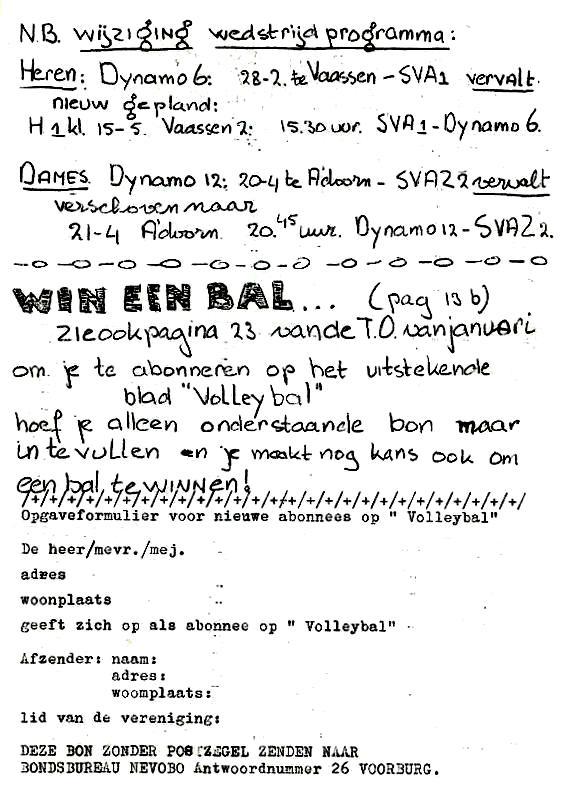 N.B. wijziging wedstrijd programma:
Heren: Dynamo 6: 28-2. te Vaassen - SVA1 vervalt.
nieuw gepland:
H 1 kl. 15-5. Vaassen 2: 15.30 uur. SVA1 - Dynamo 6.
DAMES. Dynamo 12: 20-4 te A'doorn - SVAZ 2 vervalt
verschoven naar
21-4 A'doorn. 20.45 uur. Dynamo 12 - SVAZ 2.
WIN EEN BAL... (pag 13 b)
zie ook pagina 23 van de T.O. van januari
om je te abonneren op het uitstekende
blad "Volley bal"
hoef je alleen onderstaande bon maar
in te vullen en je maakt nog kans ook om
een bal te WINNEN!
/+/+/+/+/+/+/+/+/+/+/+/+/+/+/+/+/+/+/+/+/+/+/+/
Opgaveformulier voor nieuwe abonnees op " Volleybal"
De heer/mevr./mej.
adres
woonplaats
geeft zich op als abonnee op " Volleybal"
Afzender: naam:
adres:
woomplaats:
lid van de vereniging:
DEZE BON ZONDER POSTZEGEL ZENDEN NAAR
BONDSBUREAU NEVOBO Antwoordnummer 26 VOORBURG.